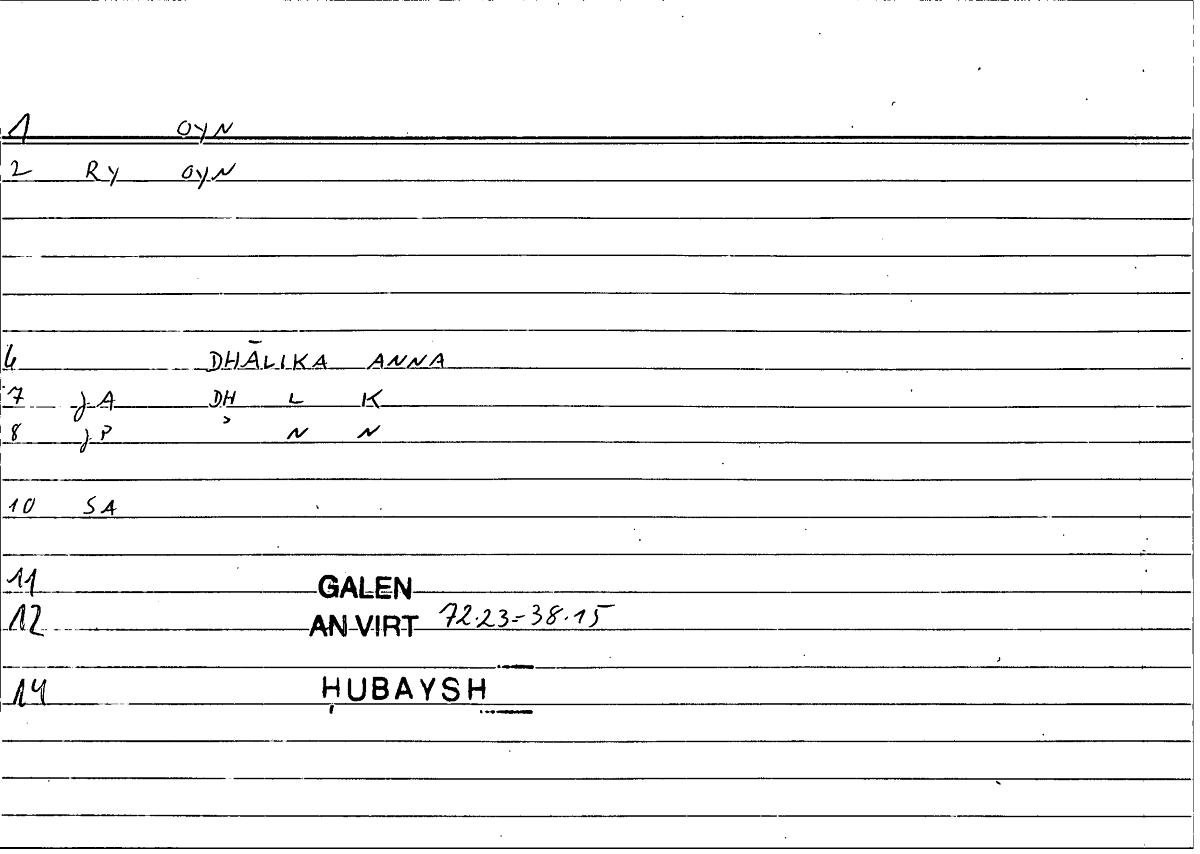 1 OYN
2 RY OYN
6 DHĀLIKA ANNA
7 JA DH L K
8 JP ʾ N N
10 SA
11 GALEN
12 AN VIRT 72.23=38.15
14 ḤUBAYSH